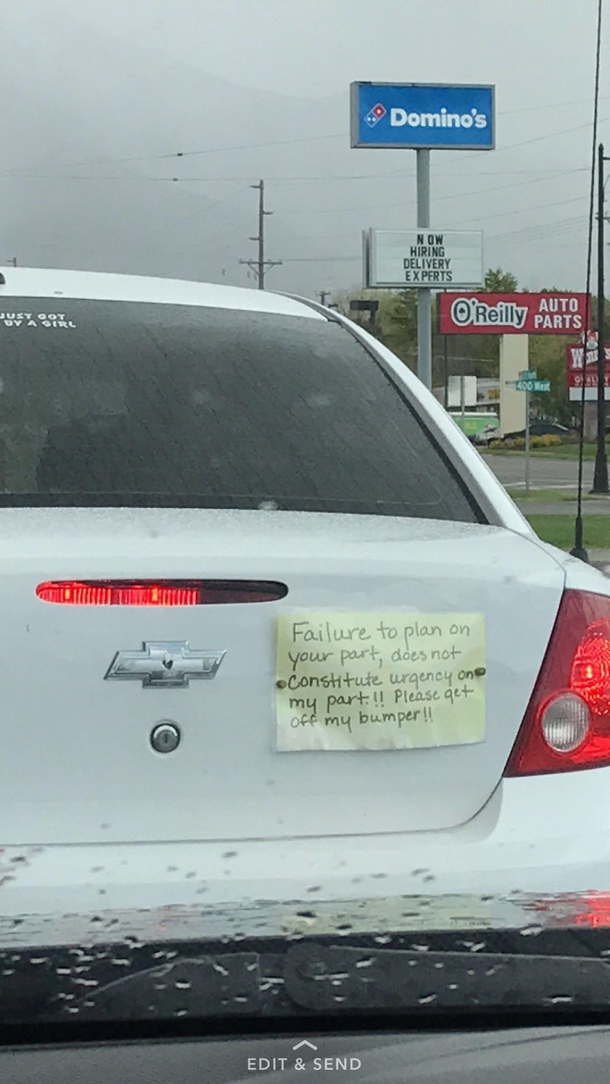 Domino's
NOW
HIRING
DELIVERY
EXPERTS
O'Reilly AUTO PARTS
400 West
JUST GOT
BY A GIRL
Failure to plan on
your part, does not
constitute urgency on
my part!! Please get
off my bumper!!
EDIT & SEND